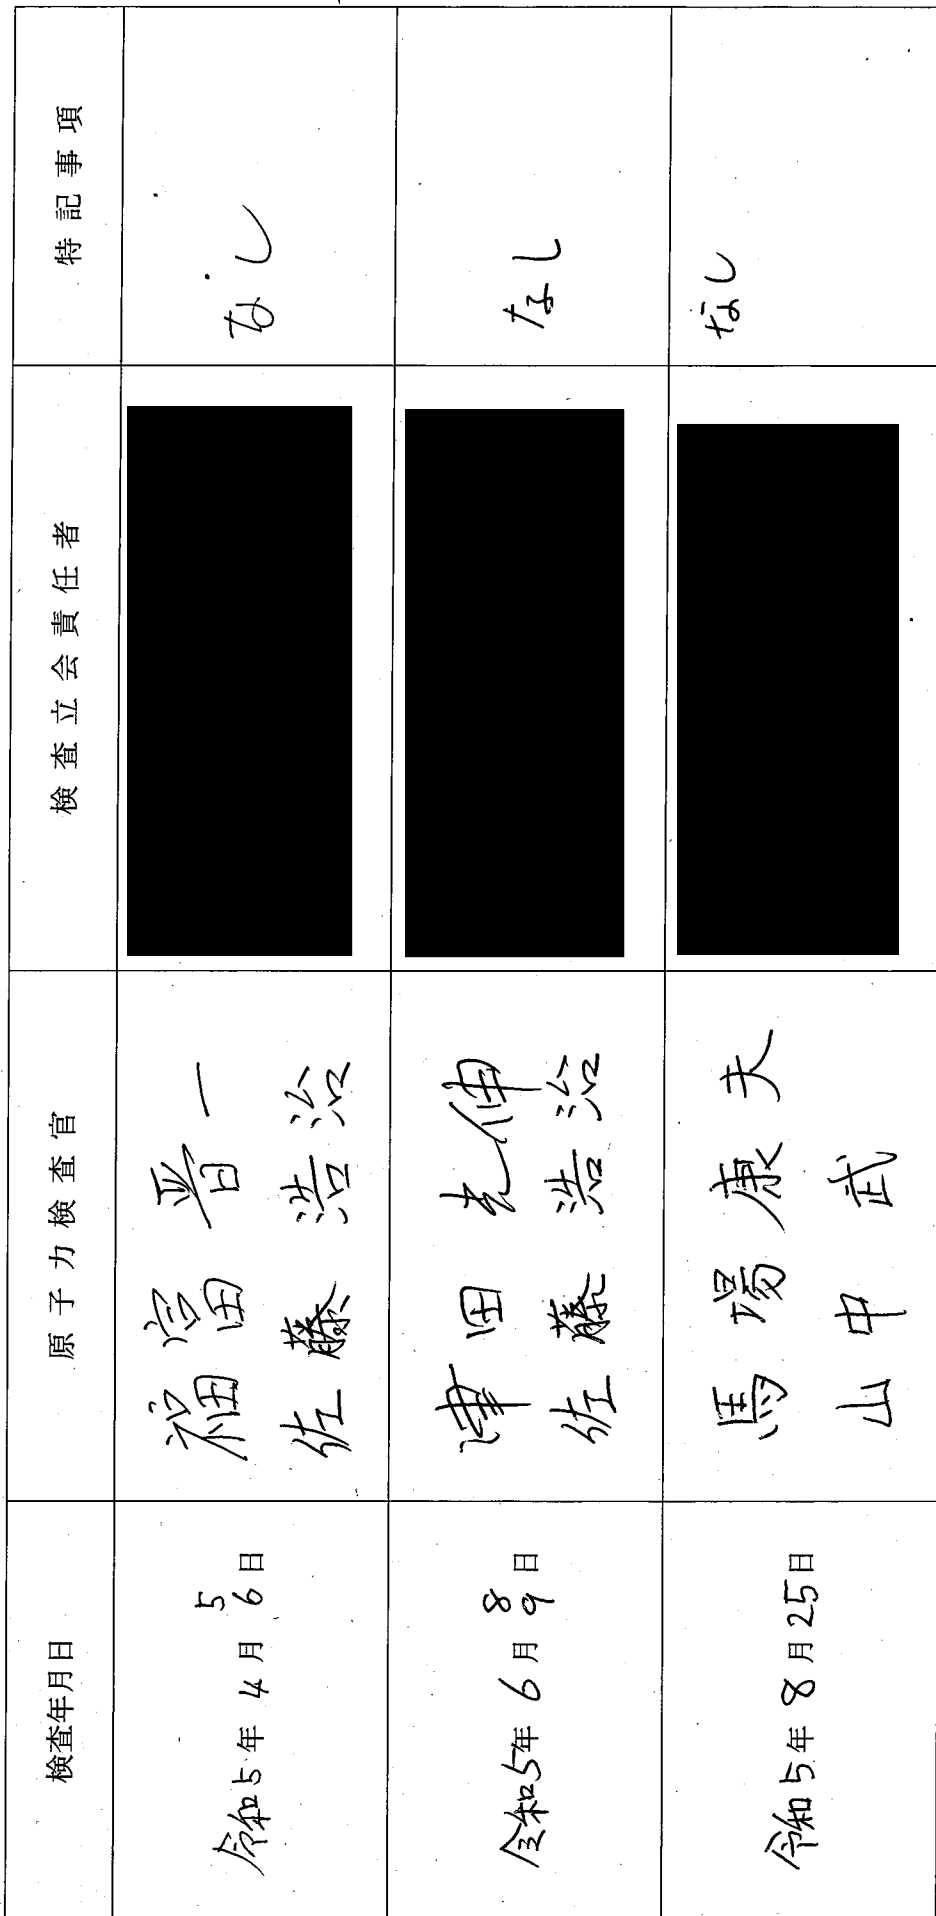 検査年月日 原子力検査官 検査立会責任者 特記事項
令和5年4月5 6日
福富晋一
佐藤浩治
なし
令和5年6月8 9日
津田 伸
佐藤浩治
なし
令和5年8月25日
馬場康夫
山中武
なし